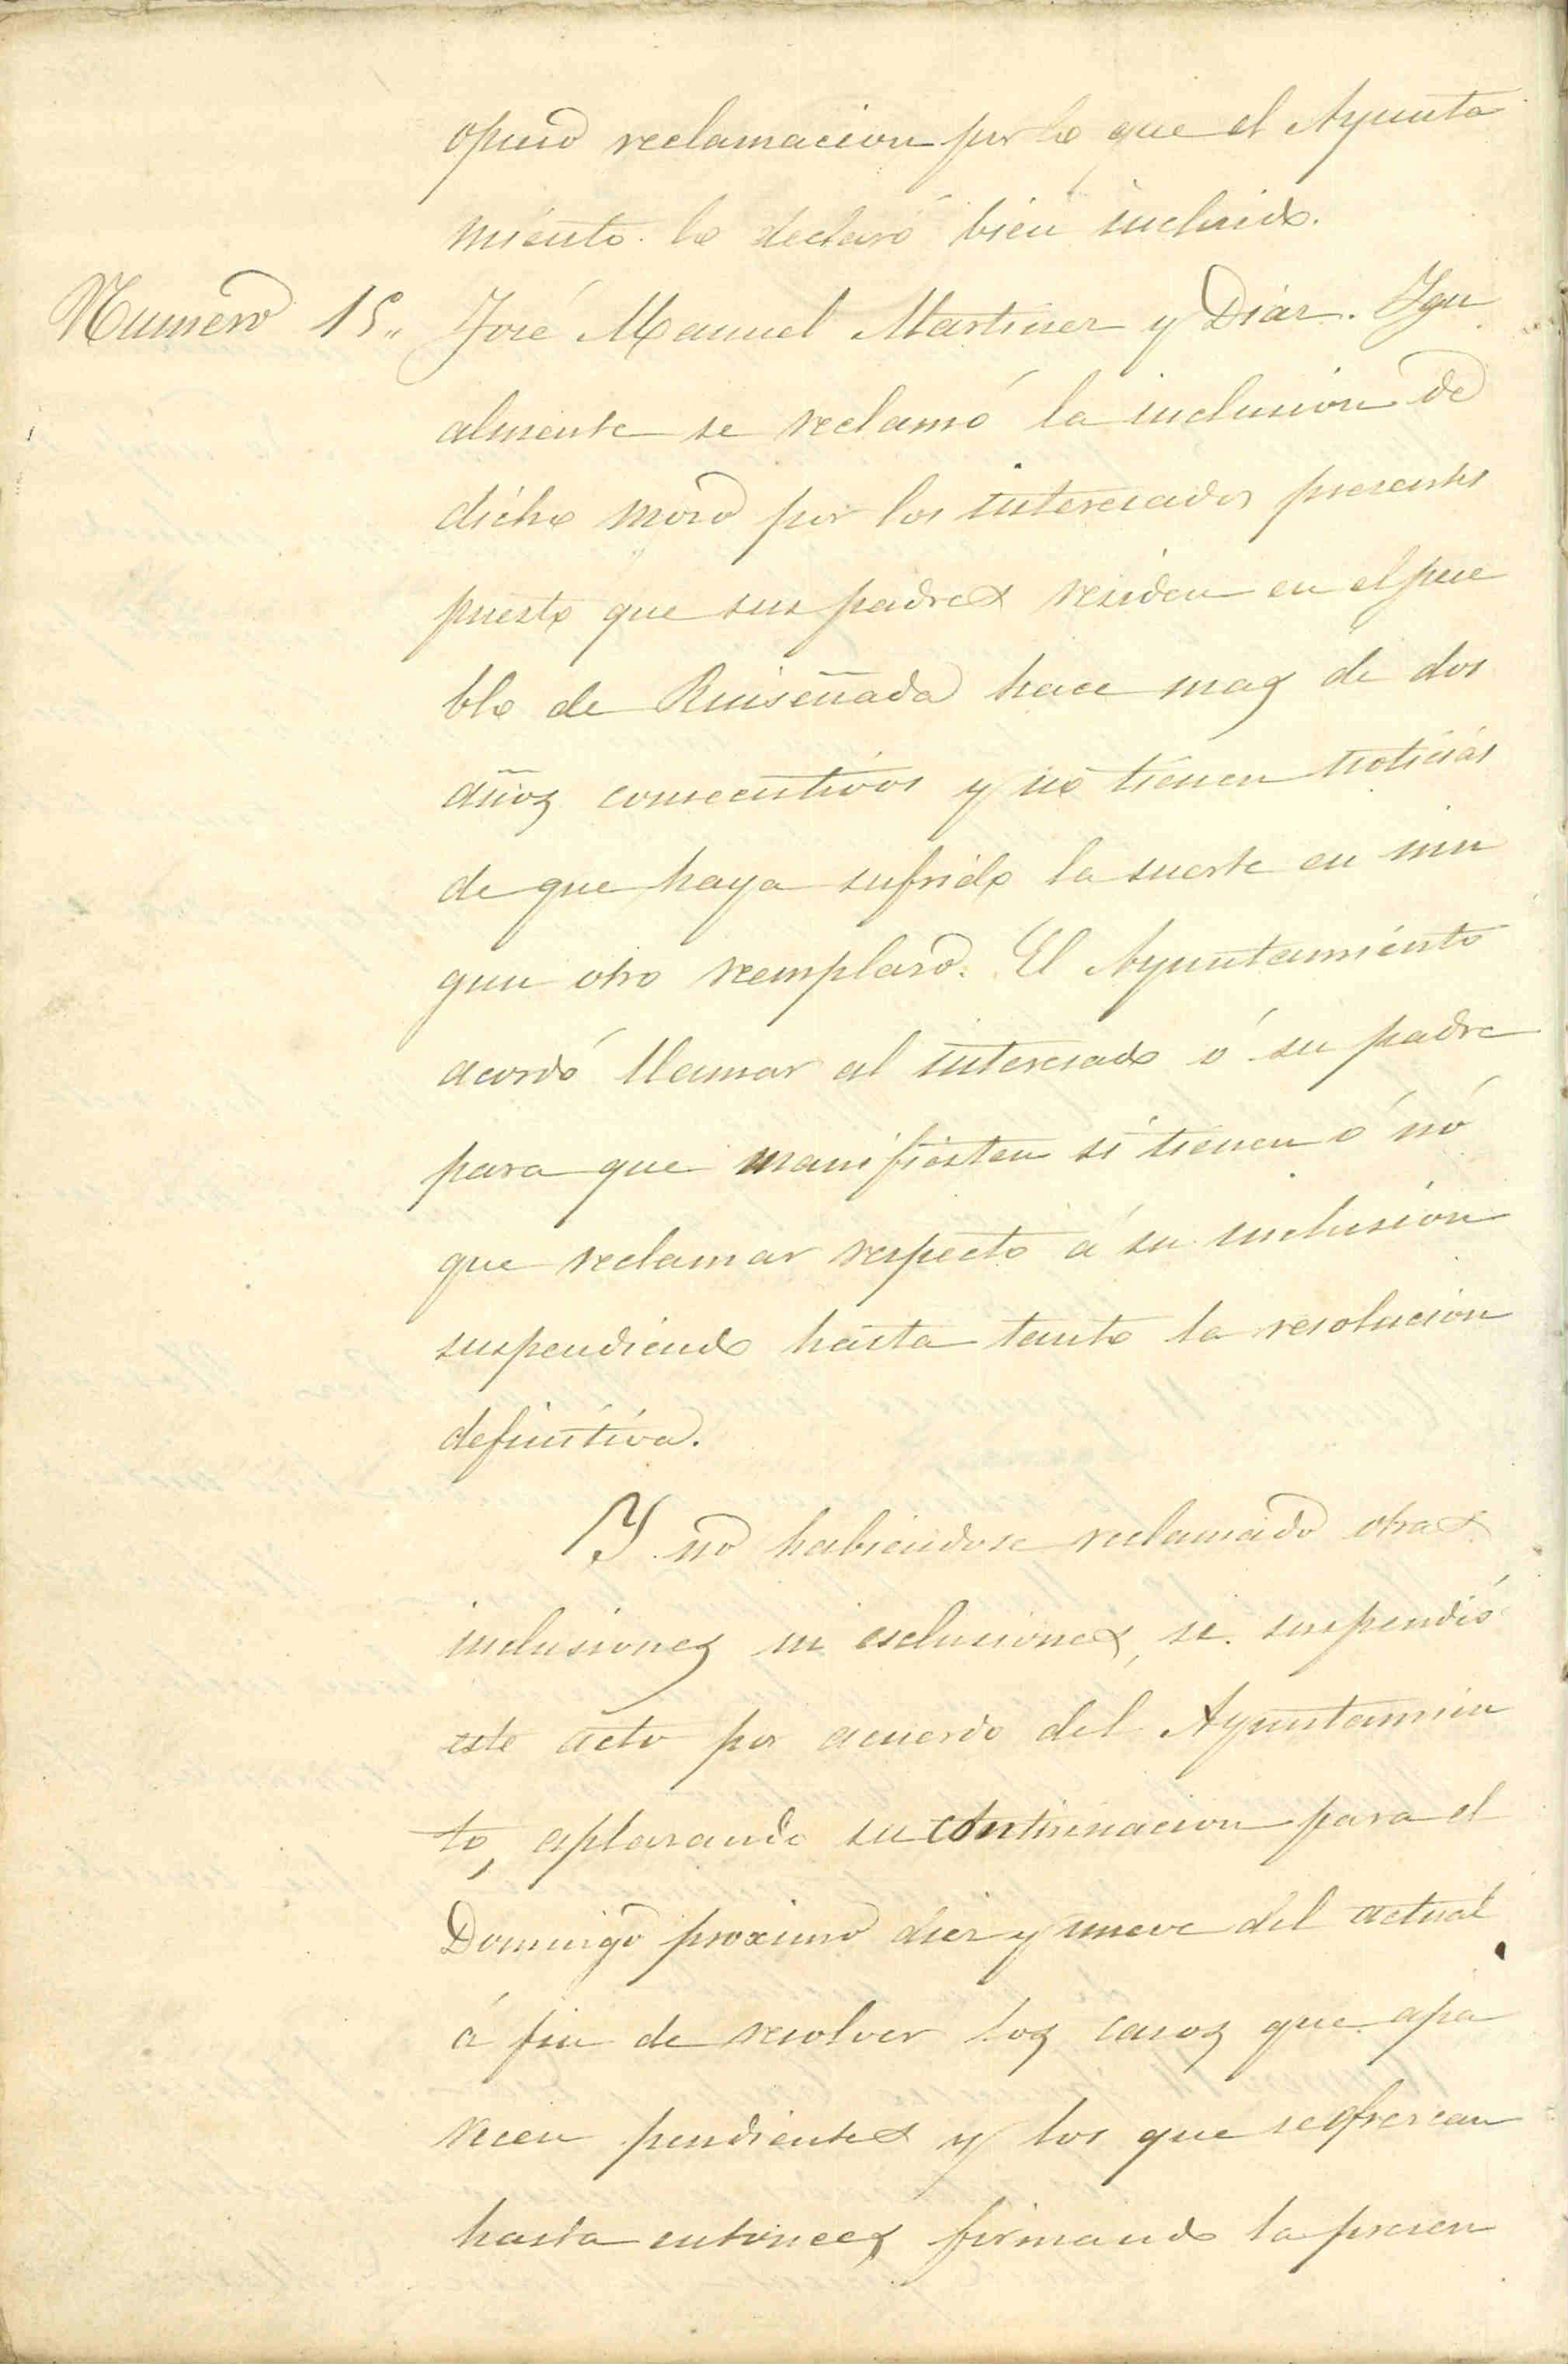 opuso reclamacion por lo que el Ayunta
miento lo declaró bien incluido.
Numero 15„ José Manuel Martinez y Diaz. Igu
almente se reclamó la inclusion de
dicho mozo por los interesados presentes
puesto que sus padres residen en el pue
blo de Ruiseñada hace mas de dos
años consecutivos y no tienen noticias
de que haya sufrido la suerte en nin
gun otro reemplazo. El Ayuntamiento
acordó llamar al interesado ó su padre
para que manifiesten si tienen ó nó
que reclamar respecto á su inclusion
suspendiendo hasta tanto la resolucion
definitiva.
Y no habiendose reclamado otras
inclusiones ni esclusiones, se suspendió
este acto por acuerdo del Ayuntamien
to, aplazando su continuacion para el
Domingo proximo diez y nueve del actual
á fin de resolver los casos que apa
recen pendientes y los que se ofrezcan
hasta entonces firmando la presen